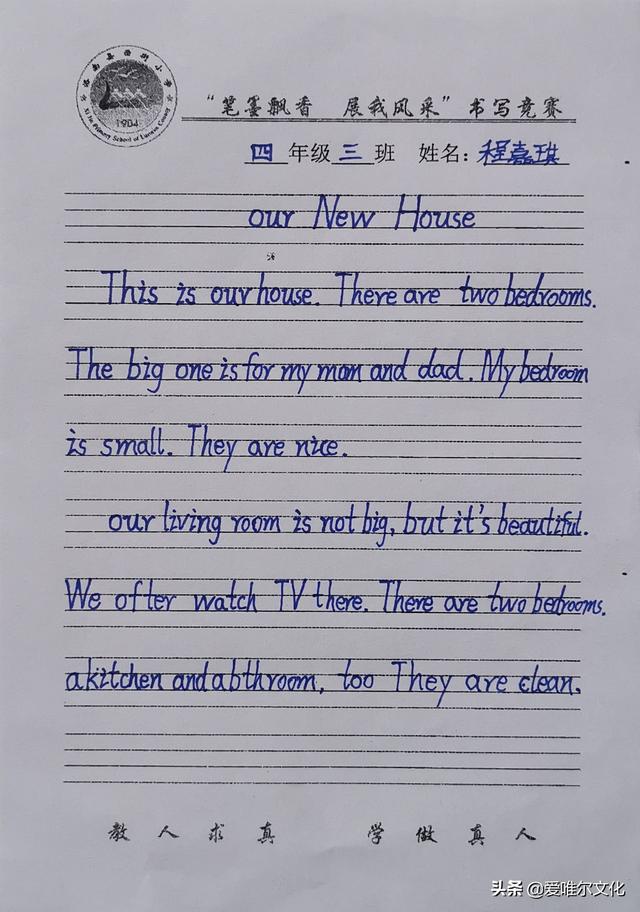 洛南县西街小学
1904
Xi Jie Primary School of Luonan County
“笔墨飘香 展我风采”书写竞赛
四 年级 三 班 姓名：程嘉琪
our New House
This is our house. There are two bedrooms.
The big one is for my mom and dad. My bedroom
is small. They are nice.
our living room is not big, but it's beautiful.
We ofter watch TV there. There are two bedrooms.
a kitchen and a bthroom, too They are clean.
教人求真 学做真人
头条 @爱唯尔文化